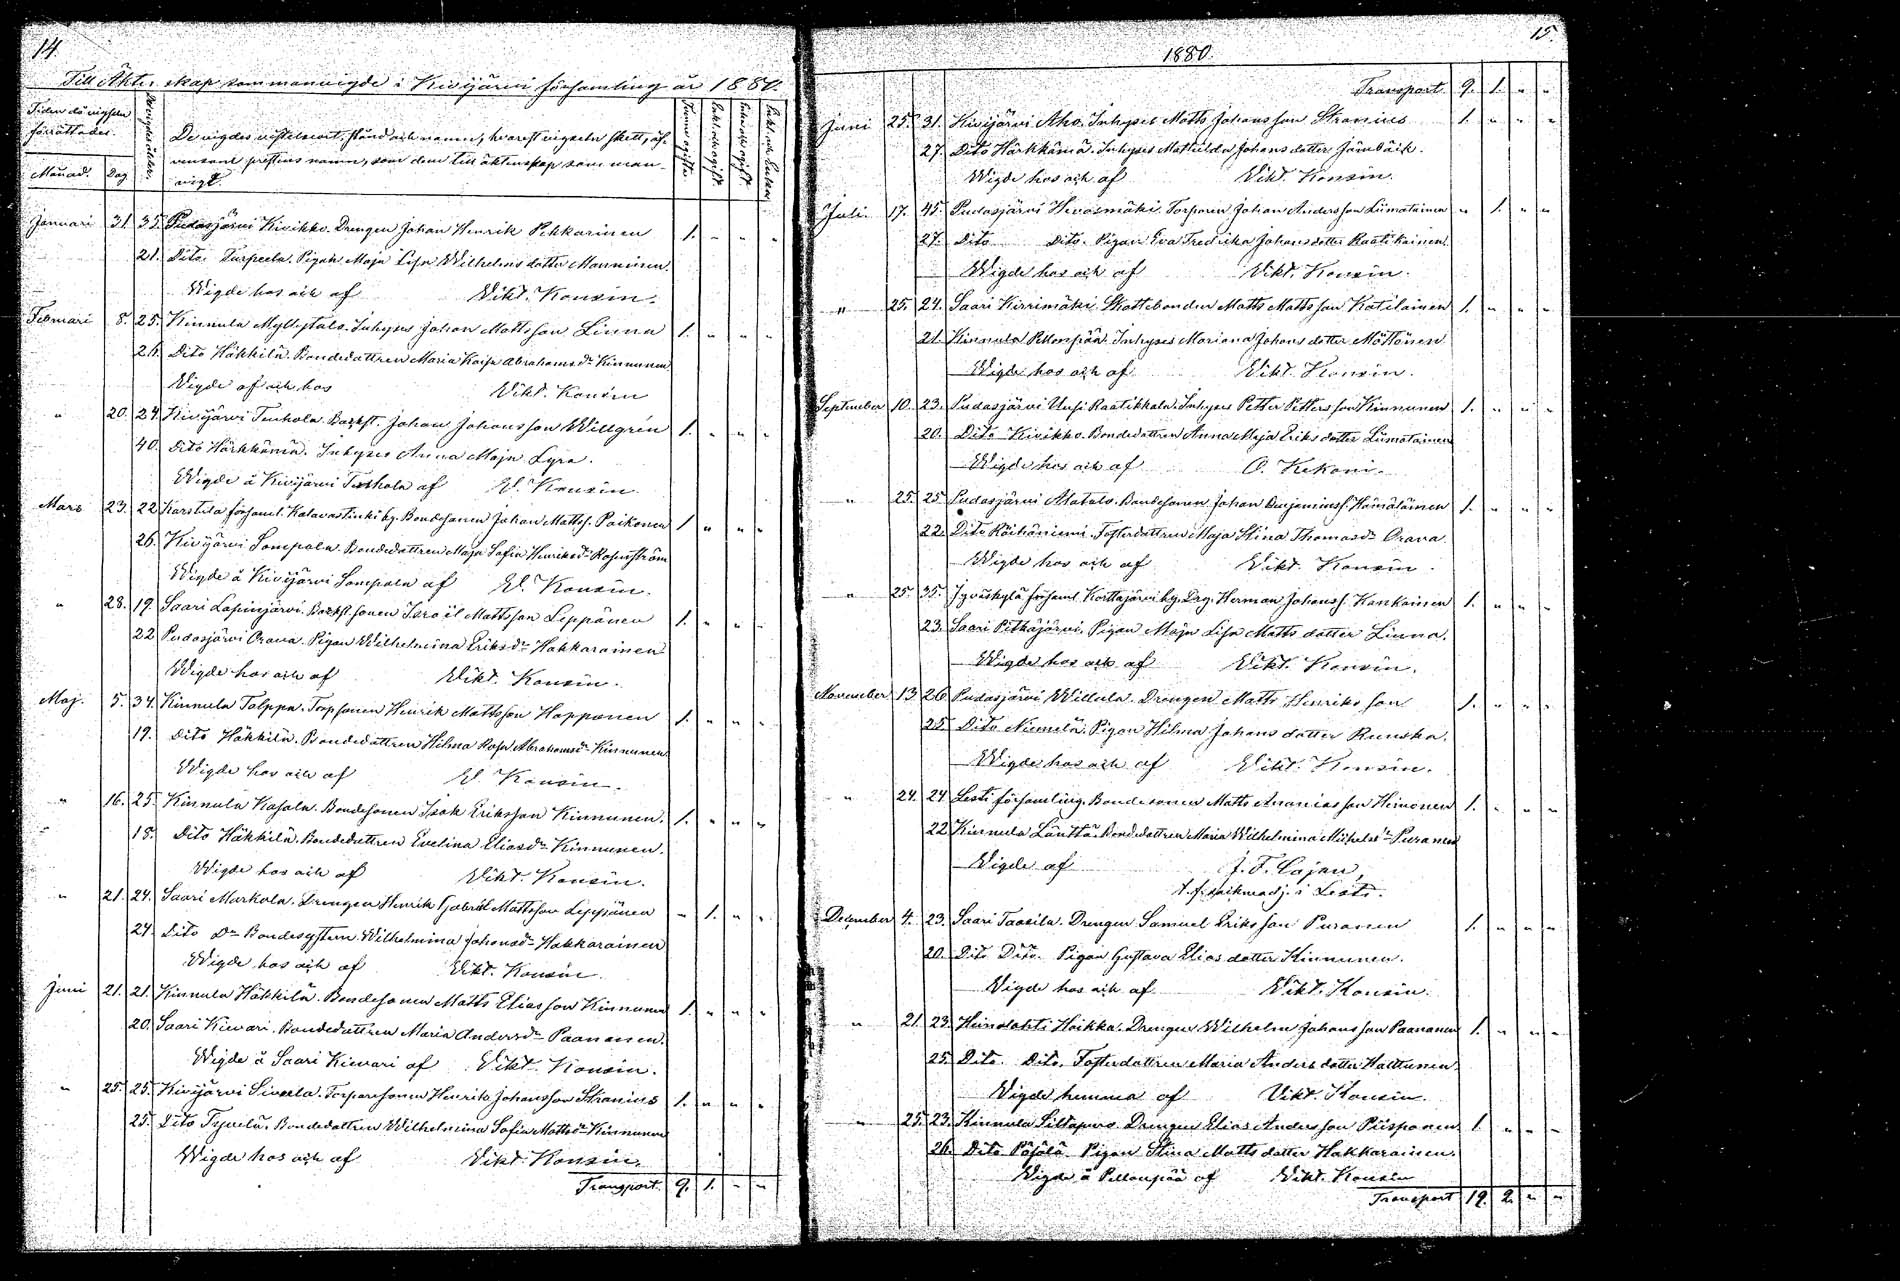 14.
Till Äktenskap sammanvigde i Kivijärvi församling år 1880.
Tiden då vigseln förrättades.
Månad. Dag
De vigdes ålder.
De vigdes vistelseort, stånd och namn, hvarest vigseln skett, äfvensom prestens namn, som dem till äktenskap samman-
vigt.
Januari 31. 35. Pudasjärvi Kivikko. Drengen Johan Henrik Pekkarinen 1. " " "
21. Dito. Turpeela. Pigan Maja Lisa Wilhelms dotter Manninen.
Wigde hos och af Vikt. Konsin.
Februari 8. 25. Kinnula Myllytalo. Inhyses Johan Mattsson Linna 1. " " "
26. Dito Häkkilä. Bondedottren Maria Kajsa Abrahamsdr Kinnunen
Wigde af och hos Vikt. Konsin
" 20. 24. Kivijärvi Tenhola. Backst. Johan Johansson Willgrén 1. " " "
40. Dito Härkkämä. Inhyses Anna Maja Lyra.
Wigde å Kivijärvi Tenhola af V. Konsin
Mars 23. 22 Karstula församl. Kalavastinki by. Bondesonen Johan Mattss. Poikonen 1 " " "
26. Kivijärvi Sompala. Bondedottren Maja Sofia Henriksdr Rosenström
Wigde å Kivijärvi Sompala af V. Konsin.
" 28. 19. Saari Lapinjärvi. Backst. sonen Israël Mattsson Leppänen 1. " " "
22 Pudasjärvi Orava. Pigan Wilhelmina Eriksdr Hakkarainen
Wigde hos och af Vikt. Konsin.
Maj. 5. 34. Kinnula Talppa. Torpsonen Henrik Mattsson Hopponen 1. " " "
19. Dito Häkkilä. Bondedottren Hilma Rosa Abrahamsdr Kinnunen
Wigde hos och af V. Konsin.
" 16. 25. Kinnula Kasala. Bondesonen Isak Eriksson Kinnunen. 1. " " "
18. Dito Häkkilä. Bondedottren Evelina Eliasdr Kinnunen.
Wigde hos och af Vikt. Konsin.
" 21. 24. Saari Markola. Drengen Henrik Gabriel Mattsson Leppänen " 1. " "
24. Dito Do Bondesystern Wilhelmina Johansdr Hakkarainen
Wigde hos och af Vikt. Konsin.
Juni 21. 21. Kinnula Häkkilä. Bondesonen Matts Eliasson Kinnunen 1. " " "
20. Saari Kiewari. Bondedottren Maria Andersdr Paananen.
Wigde å Saari Kiewari af Vikt. Konsin.
" 25. 25. Kivijärvi Siweela. Torparesonen Henrik Johansson Stranius 1. " " "
25. Dito Tyynelä. Bondedottren Wilhelmina Sofia Mattsdr Kinnunen
Wigde hos och af Vikt. Konsin.
Transport. 9. 1. " "
15.
1880.
Transport. 9. 1. " "
Juni 25. 31. Kivijärvi Aho. Inhyses Matts Johansson Stranius 1. " " "
27. Dito Härkkämä. Inhyses Mathilda Johans dotter Jämbäck.
Wigde hos och af Vikt. Konsin.
Juli 17. 45. Pudasjärvi Hevosmäki. Torparen Johan Andersson Liimatainen " 1. " "
27. Dito Dito. Pigan Eva Fredrika Johans dotter Raatikainen.
Wigde hos och af Vikt. Konsin.
" 25. 24. Saari Kirrimäki. Skattebonden Matts Mattsson Kotilainen 1. " " "
21. Kinnula Pellonpää. Inhyses Mariana Johans dotter Möttönen
Wigde hos och af Vikt. Konsin.
September 10. 23. Pudasjärvi Uusi Raatikkala. Inhyses Petter Pettersson Kinnunen 1. " " "
20. Dito Kivikko. Bondedottren Anna Maja Eriks dotter Liimatainen
Wigde hos och af O. Kekoni.
" 25. 25 Pudasjärvi Alatalo. Bondesonen Johan Benjaminss. Hämäläinen 1. " " "
22. Dito Räihäniemi. Fosterdottren Maja Stina Thomasdr Orava.
Wigde hos och af Vikt. Konsin.
" 25. 35. Jyväskylä församl. Korttajärvi by. Drg. Herman Johanss. Kankainen 1. " " "
23. Saari Pitkäjärvi. Pigan Maja Lisa Matts dotter Linna.
Wigde hos och af Vikt. Konsin.
November 13 26. Pudasjärvi Willula. Drengen Matts Henriks son 1. " " "
25. Dito Niemelä. Pigan Hilma Johans dotter Ruuska.
Wigde hos och af Vikt. Konsin.
" 24. 24 Lesti församling. Bondesonen Matts Ananiasson Heinonen 1. " " "
22 Kinnula Länttä. Bondedottren Maria Wilhelmina Michelsdr Puranen
Wigde af J. F. Cajan,
t. f. sockneadj. i Lesti.
December 4. 23. Saari Taasila. Drengen Samuel Eriksson Puranen 1. " " "
20. Dito Dito. Pigan Gustava Elias dotter Kinnunen.
Wigde hos och af Vikt. Konsin.
" 21. 23. Heinolahti Hoikka. Drengen Wilhelm Johansson Paananen 1. " " "
25. Dito. Dito. Fosterdottren Maria Anders dotter Hattunen.
Wigde hemma af Vikt. Konsin.
" 25. 23. Kinnula Siltapuro. Drengen Elias Andersson Piispanen 1. " " "
26. Dito Päsälä. Pigan Stina Matts dotter Hakkarainen.
Wigde å Pellonpää af Vikt. Konsin
Transport 19. 2. " "